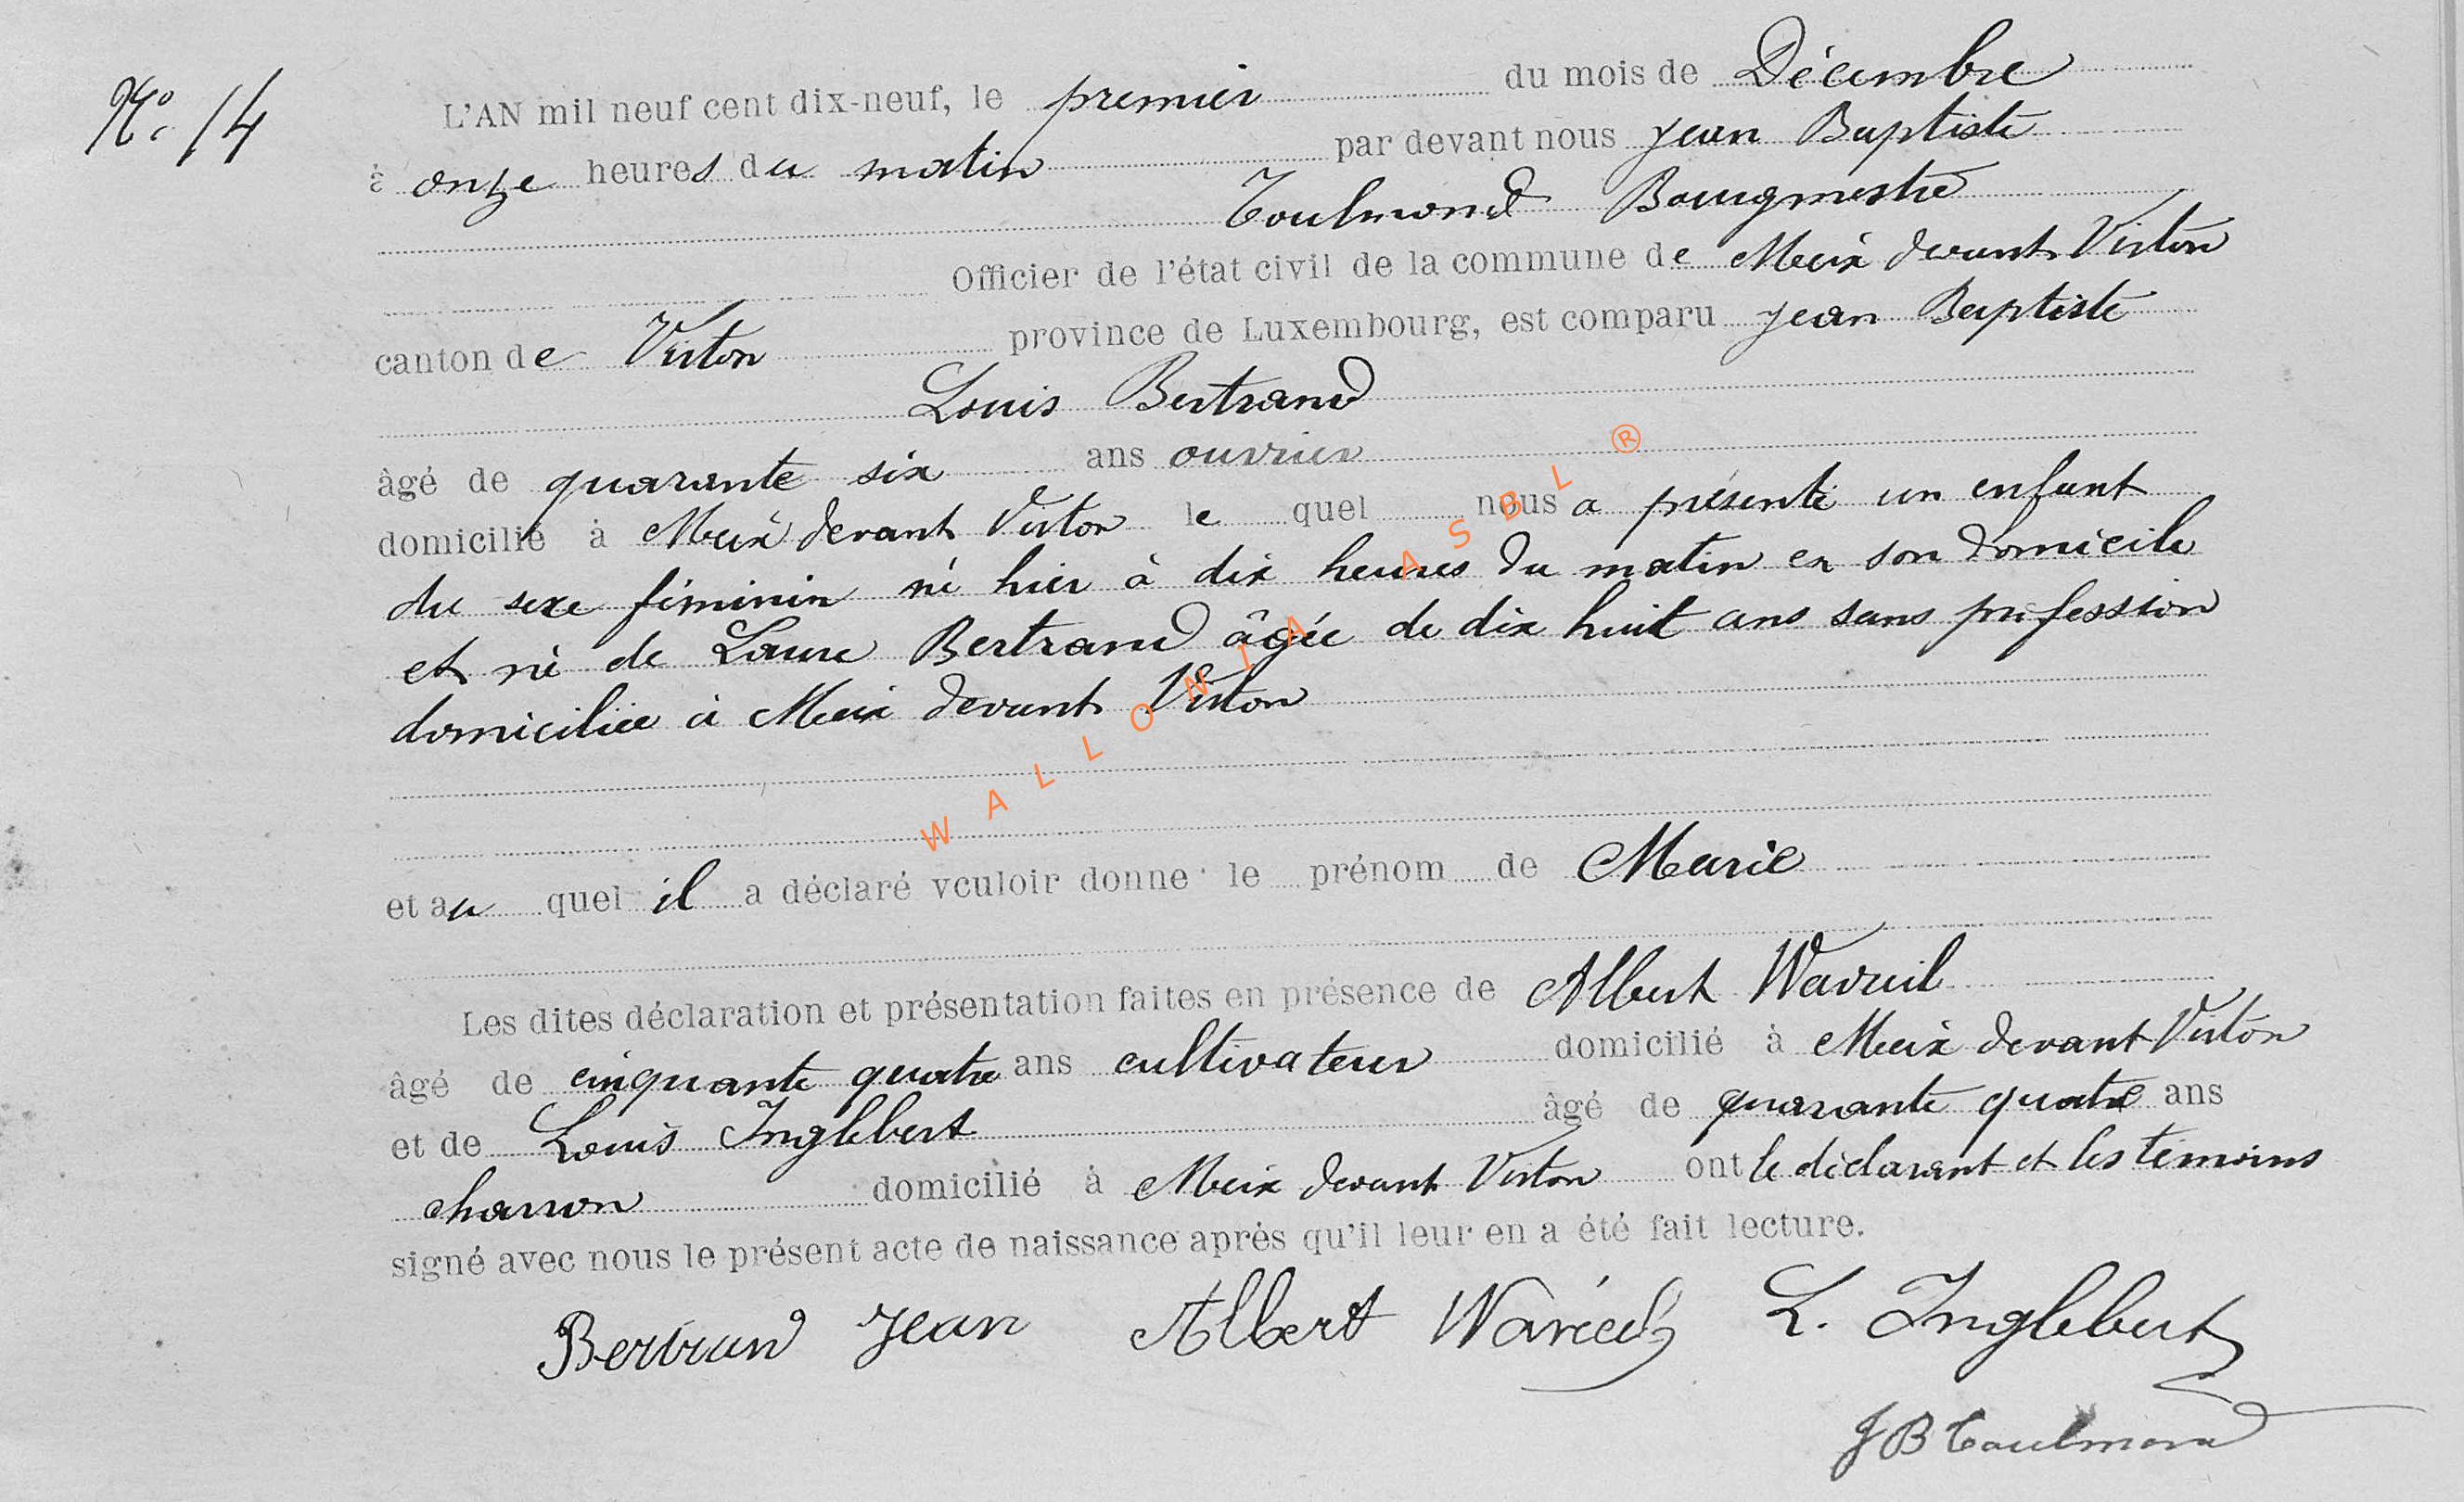 N° 14
L'AN mil neuf cent dix-neuf, le premier du mois de Décembre
à onze heures du matin par devant nous Jean Baptiste
Toulmond Bourgmestre
Officier de l'état civil de la commune de Meix devant Virton
canton de Virton province de Luxembourg, est comparu Jean Baptiste
Louis Bertrand
âgé de quarante six ans ouvrier
domicilié à Meix devant Virton le quel nous a présenté un enfant
du sexe féminin né hier à dix heures du matin en son domicile
et né de Laure Bertrand âgée de dix huit ans sans profession
domiciliée à Meix devant Virton
et au quel il a déclaré vouloir donner le prénom de Marie
Les dites déclaration et présentation faites en présence de Albert
âgé de cinquante quatre ans cultivateur domicilié à Meix devant Virton
et de Louis Inglebert âgé de quarante quatre ans
charron domicilié à Meix devant Virton ont le déclarant et les témoins
signé avec nous le présent acte de naissance après qu'il leur en a été fait lecture.
Bertrand Jean Albert L. Inglebert
JB Toulmond
WALLONIA ASBL ®